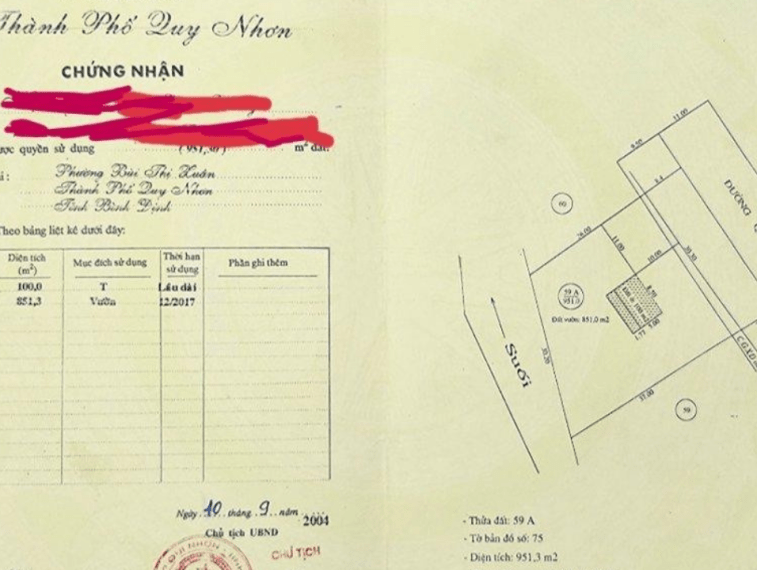 Thành Phố Quy Nhơn
CHỨNG NHẬN
ược quyền sử dụng (951,30) m² đất.
i: Phường Bùi Thị Xuân
Thành Phố Quy Nhơn
Tỉnh Bình Định
Theo bảng liệt kê dưới đây:
Diện tích (m²) Mục đích sử dụng Thời hạn sử dụng Phần ghi thêm
100,0 T Lâu dài
851,3 Vườn 12/2017
Ngày 10 tháng 9 năm 2004
Chủ tịch UBND
CHỦ TỊCH
QUI NHƠN
11.00
9.50
ĐƯỜNG
5.4
60
26.00
11.00
10.00
20.50
59 A
951,0
Đất vườn: 851,0 m2
8.50
5.00
1.75
Suối
30.20
37.00
C.G.X.D
59
- Thửa đất: 59 A
- Tờ bản đồ số: 75
- Diện tích: 951,3 m2